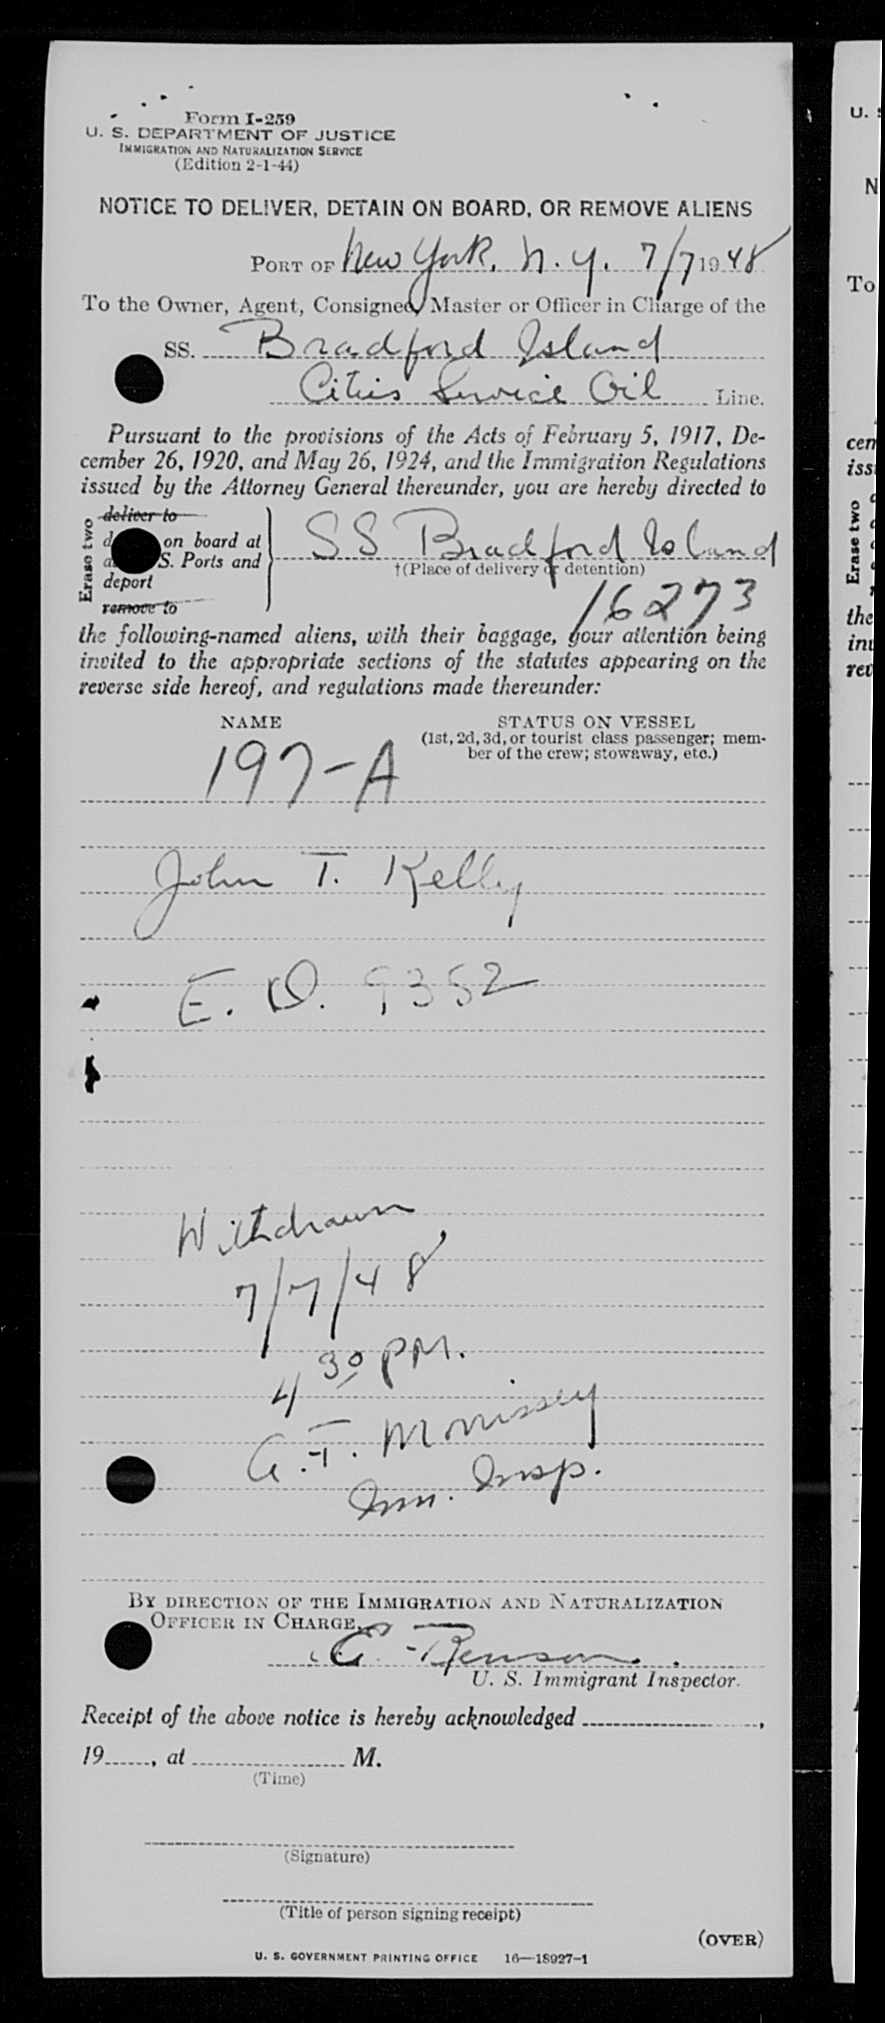 Form I-259
U. S. DEPARTMENT OF JUSTICE
IMMIGRATION AND NATURALIZATION SERVICE
(Edition 2-1-44)
NOTICE TO DELIVER, DETAIN ON BOARD, OR REMOVE ALIENS
PORT OF New York, N. Y. 7/7 1948
To the Owner, Agent, Consignee, Master or Officer in Charge of the
SS. Bradford Island
Cities Service Oil Line.
Pursuant to the provisions of the Acts of February 5, 1917, De-
cember 26, 1920, and May 26, 1924, and the Immigration Regulations
issued by the Attorney General thereunder, you are hereby directed to
Erase two
deliver to
on board at
S. Ports and
deport
remove to
SS Bradford Island
†(Place of delivery or detention)
16273
the following-named aliens, with their baggage, your attention being
invited to the appropriate sections of the statutes appearing on the
reverse side hereof, and regulations made thereunder:
NAME STATUS ON VESSEL
(1st, 2d, 3d, or tourist class passenger; mem-
ber of the crew; stowaway, etc.)
197-A
John T. Kelly
E. D. 9352
Withdrawn
7/7/48
4 30 PM.
G. T. Morrissey
Imm. Insp.
BY DIRECTION OF THE IMMIGRATION AND NATURALIZATION
OFFICER IN CHARGE,
Benson
U. S. Immigrant Inspector.
Receipt of the above notice is hereby acknowledged ,
19 , at M.
(Time)
(Signature)
(Title of person signing receipt)
(OVER)
U. S. GOVERNMENT PRINTING OFFICE 16—18927-1
U. S
N
To
cem
iss
Erase two
the
inv
rev